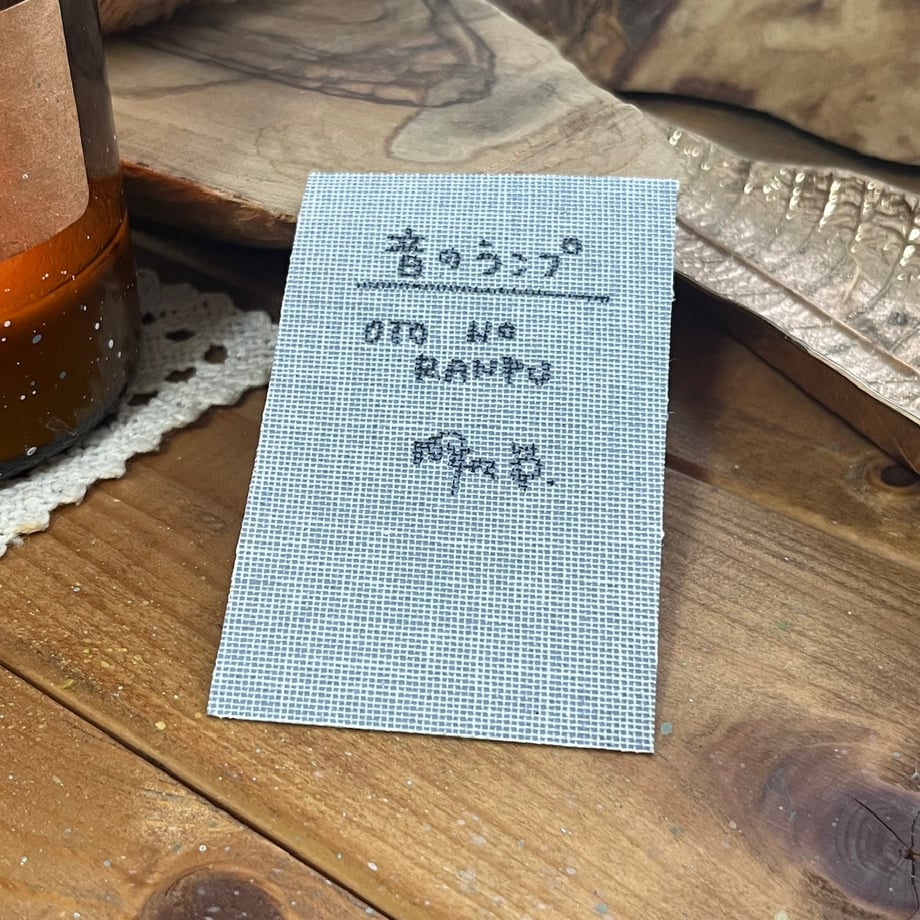 音のランプ
OTO NO
RANPU